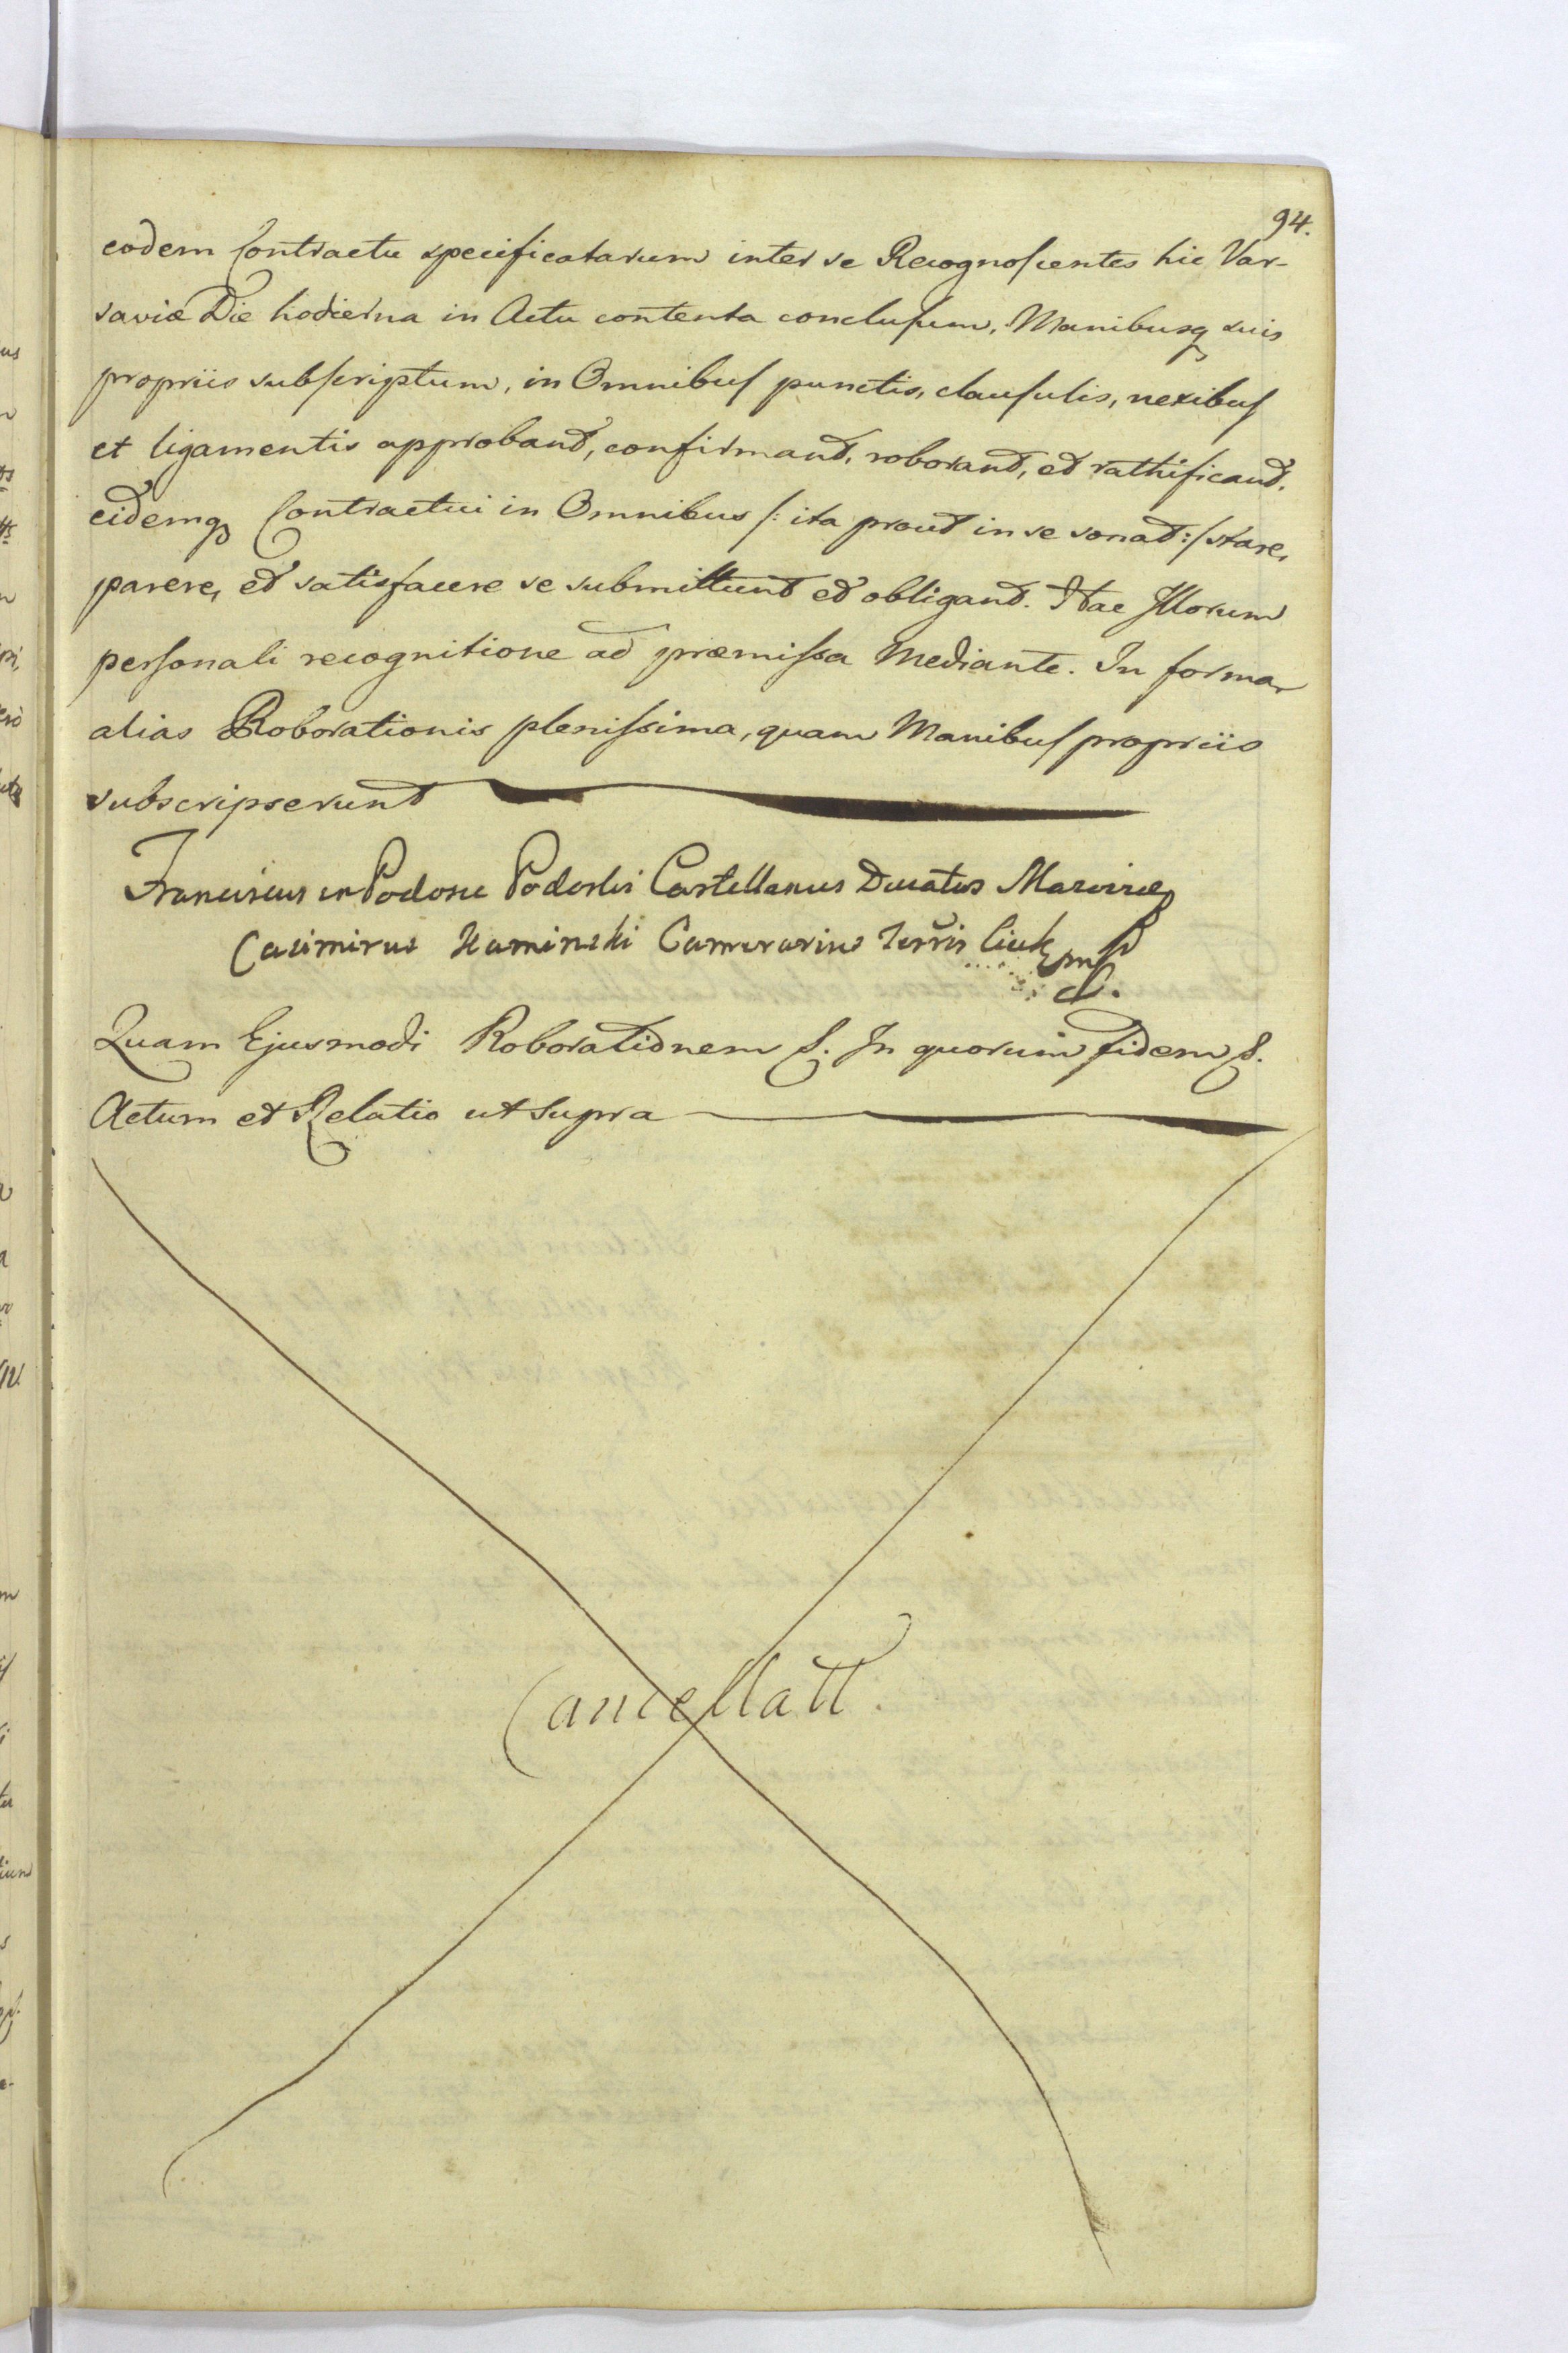 94.
eodem Contractu specificatarum inter se Recognoscentes hic Var-
saviæ Die hodierna in Actu contenta conclusum, Manibusq suis
propriis subscriptum, in Omnibus punctis, clausulis, nexibus
et ligamentis approbant, confirmant, roborant, et rathificant,
eidemq Contractui in Omnibus /: ita prout in se sonat :/ stare,
parere, et satisfacere se submittunt et obligant. Hac Illorum
personali recognitione ad præmissa Mediante. In forma
alias Roborationis plenissima, quam Manibus propriis
subscripserunt
Franciscus in Podosie Podoski Castellanus Ducatus Mazoviæ
Casimirus Kaminski Camerarius Terris Ciek mp
Quam Ejusmodi Roborationem &. In quorum fidem &.
Actum et Relatio ut supra
Cancellatt.